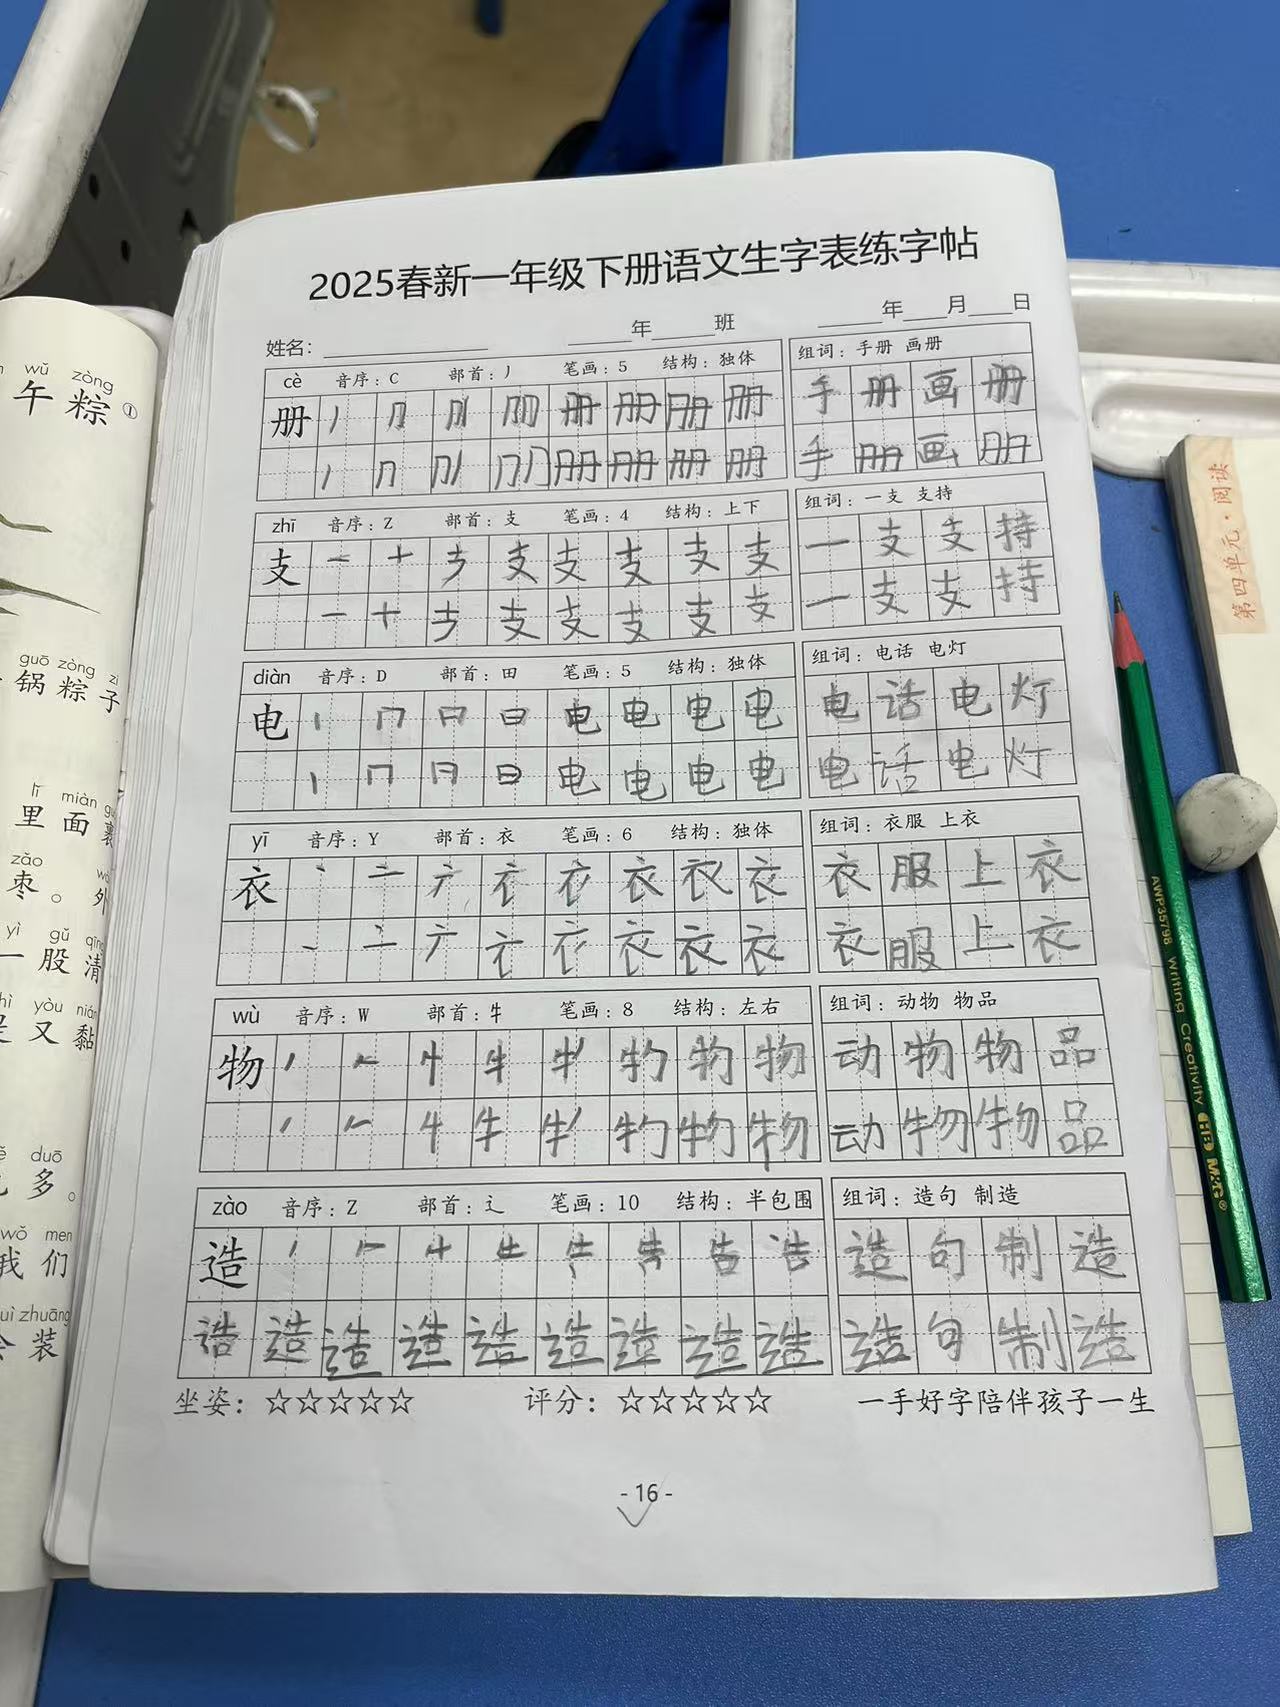 2025春新一年级下册语文生字表练字帖
姓名：
年 班
年 月 日
cè 音序：C 部首：丿 笔画：5 结构：独体
组词：手册 画册
册 丿 册 册 册 册
手 册 画 册
册 册 册 册
手 册 画 册
zhī 音序：Z 部首：支 笔画：4 结构：上下
组词：一支 支持
支 一 十 支 支 支 支 支
一 支 支 持
一 十 支 支 支 支 支
一 支 支 持
diàn 音序：D 部首：田 笔画：5 结构：独体
组词：电话 电灯
电 丨 冂 日 电 电 电 电
电 话 电 灯
丨 冂 日 电 电 电 电
电 话 电 灯
yī 音序：Y 部首：衣 笔画：6 结构：独体
组词：衣服 上衣
衣 丶 亠 衣 衣 衣
衣 服 上 衣
丶 亠 衣 衣 衣
衣 服 上 衣
wù 音序：W 部首：牜 笔画：8 结构：左右
组词：动物 物品
物 丿 𠂉 牜 物 物
动 物 物 品
丿 𠂉 牜 物 物
动 物 物 品
zào 音序：Z 部首：辶 笔画：10 结构：半包围
组词：造句 制造
造 丿 𠂉 告
造 句 制 造
造 造 造 造 造 造 造 造
造 句 制 造
坐姿：☆☆☆☆☆ 评分：☆☆☆☆☆ 一手好字陪伴孩子一生
- 16 -
wǔ zòng
午 粽 ①
guō zòng zi
锅 粽 子
lǐ miàn
里 面 裹
zǎo
枣 。 外
yì gǔ qīng
一 股 清
yòu nián
又 黏
duō
多 。
wǒ men
我 们
zhuāng
会 装
第四单元·阅读
AWP35798 Writing Creativity HB M&G